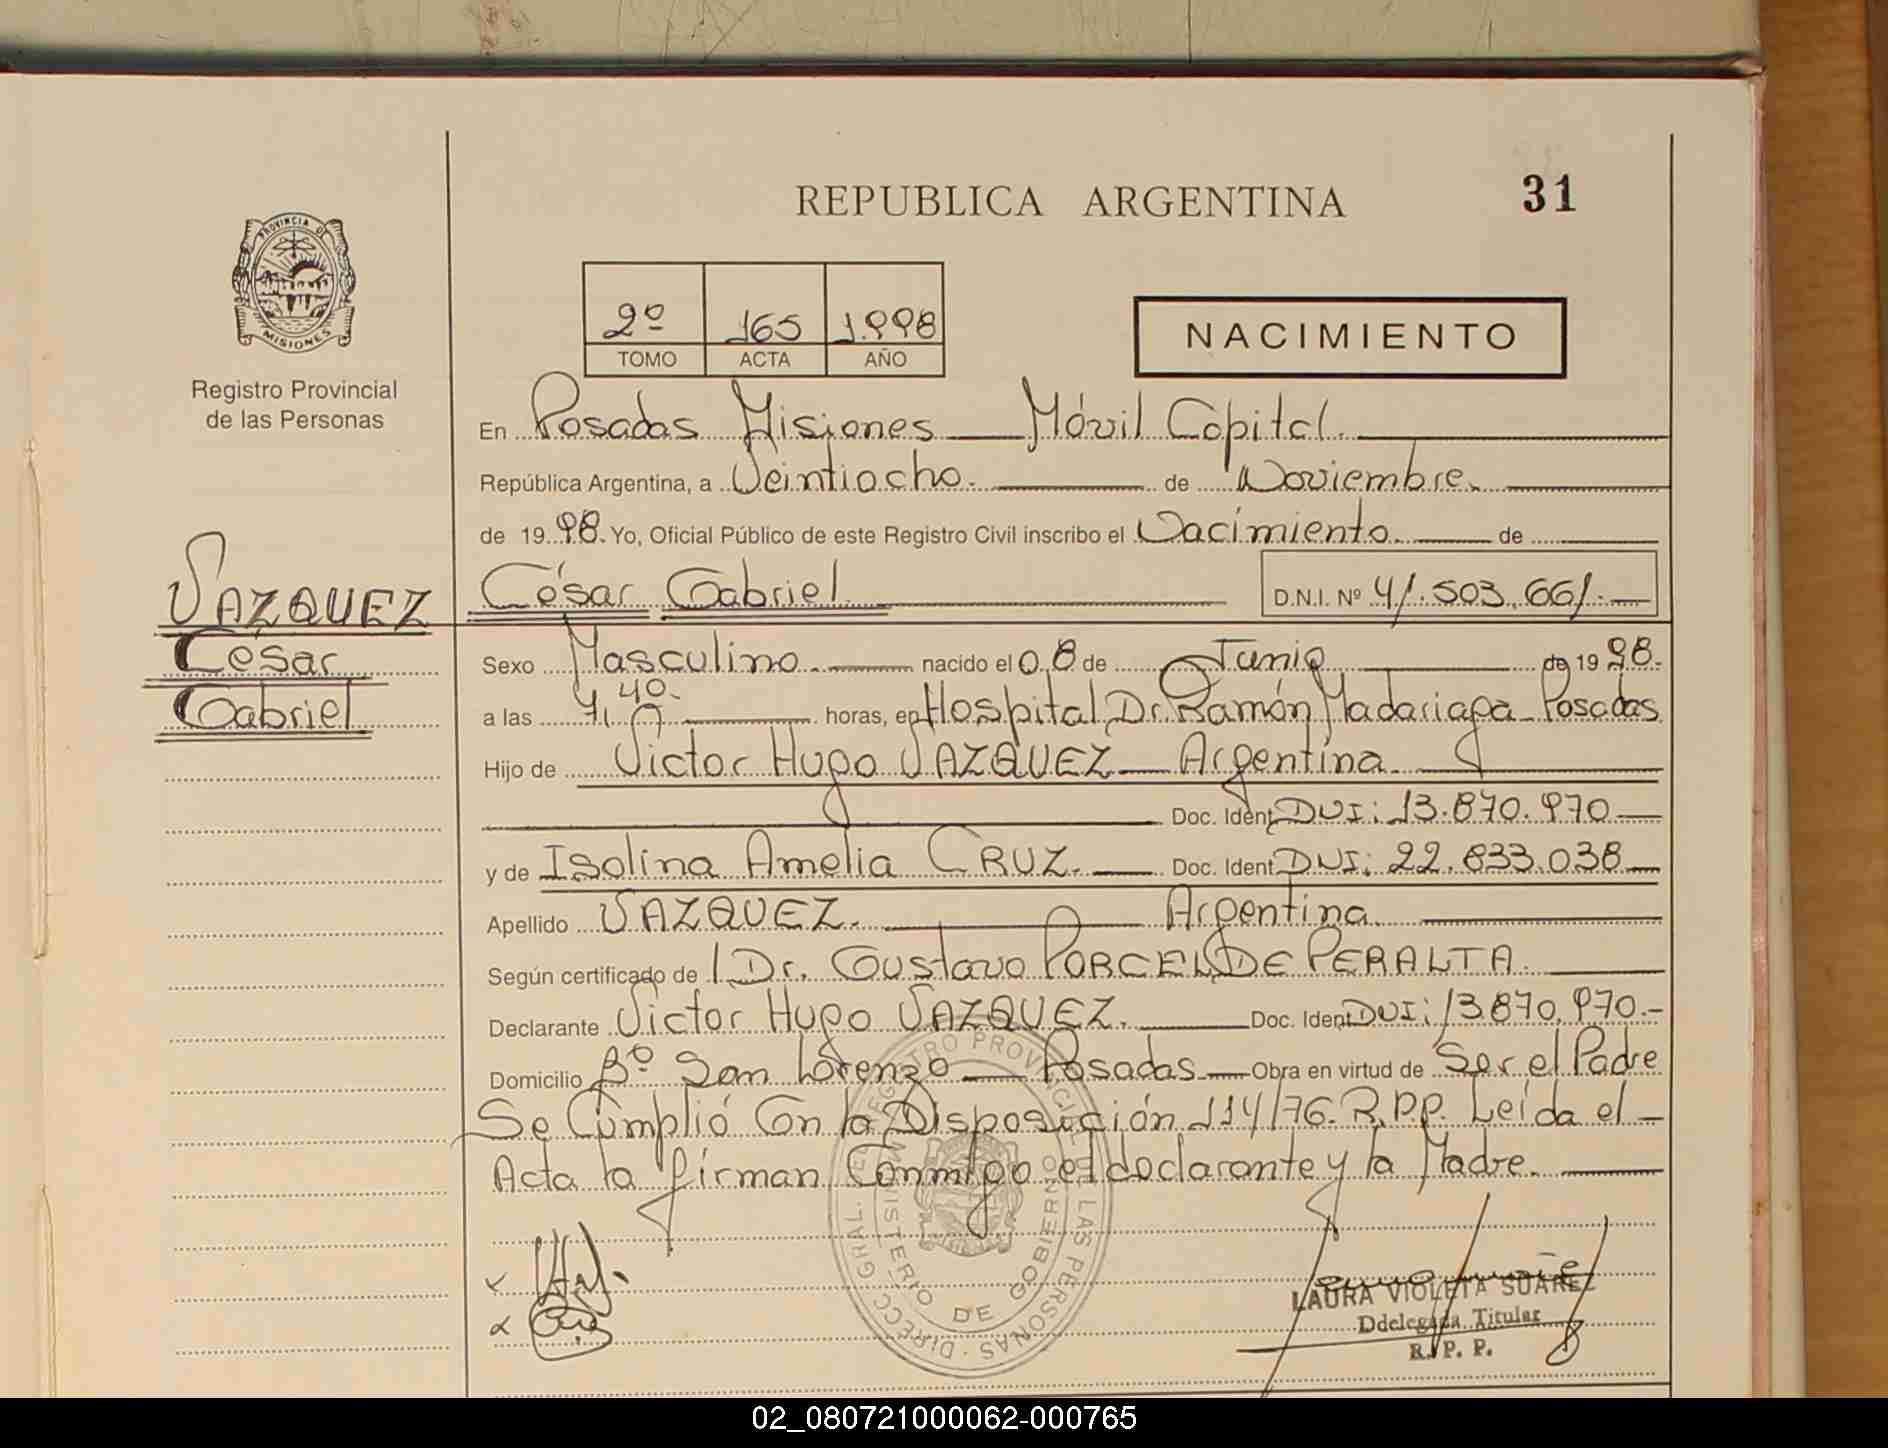 REPUBLICA ARGENTINA
31
PROVINCIA DE
MISIONES
Registro Provincial
de las Personas
2º 165 1.998
TOMO ACTA AÑO
NACIMIENTO
En Posadas Misiones Móvil Capital.
República Argentina, a Veintiocho. de Noviembre.
de 19 98. Yo, Oficial Público de este Registro Civil inscribo el Nacimiento. de
VAZQUEZ
César
Gabriel
César Gabriel D.N.I. Nº 41.503.661.-
Sexo Masculino. nacido el 08 de Junio de 19 98.
a las horas, en Hospital Dr. Ramón Madariaga Posadas
Hijo de Victor Hugo VAZQUEZ Argentina.
Doc. Ident. DNI: 13.870.970
y de Isolina Amelia CRUZ. Doc. Ident. DNI: 22.833.038
Apellido VAZQUEZ. Argentina.
Según certificado de Dr. Gustavo PORCEL DE PERALTA.
Declarante Victor Hugo VAZQUEZ. Doc. Ident. DNI: 13.870.970.-
Domicilio Bº San Lorenzo Posadas Obra en virtud de Ser el Padre
Se Cumplió Con la Disposición 114/76. R.P.P. Leída el
Acta la firman Conmigo el declarante y la Madre.
DIRECC. GRAL. DEL REGISTRO PROVINCIAL DE LAS PERSONAS
MINISTERIO DE GOBIERNO
LAURA VIOLETA SUAREZ
Ddelegada Titular
R. P. P.
02_080721000062-000765